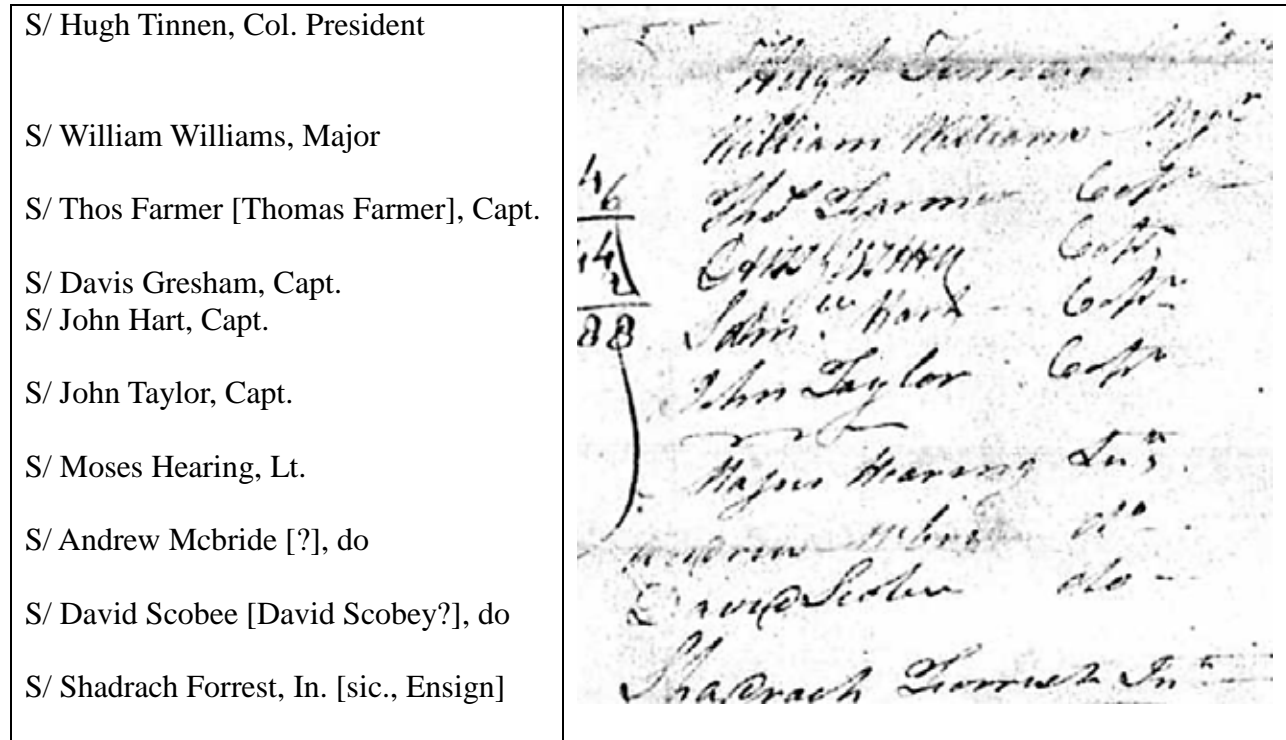 S/ Hugh Tinnen, Col. President
S/ William Williams, Major
S/ Thos Farmer [Thomas Farmer], Capt.
S/ Davis Gresham, Capt.
S/ John Hart, Capt.
S/ John Taylor, Capt.
S/ Moses Hearing, Lt.
S/ Andrew Mcbride [?], do
S/ David Scobee [David Scobey?], do
S/ Shadrach Forrest, In. [sic., Ensign]
Hugh Tinnen
William Williams Majr
46
Thos Farmer Capt
Capt
44
Hart Capt
88
John Taylor Capt
Hearing
Andrew do
David do
Shadrach Forrest In